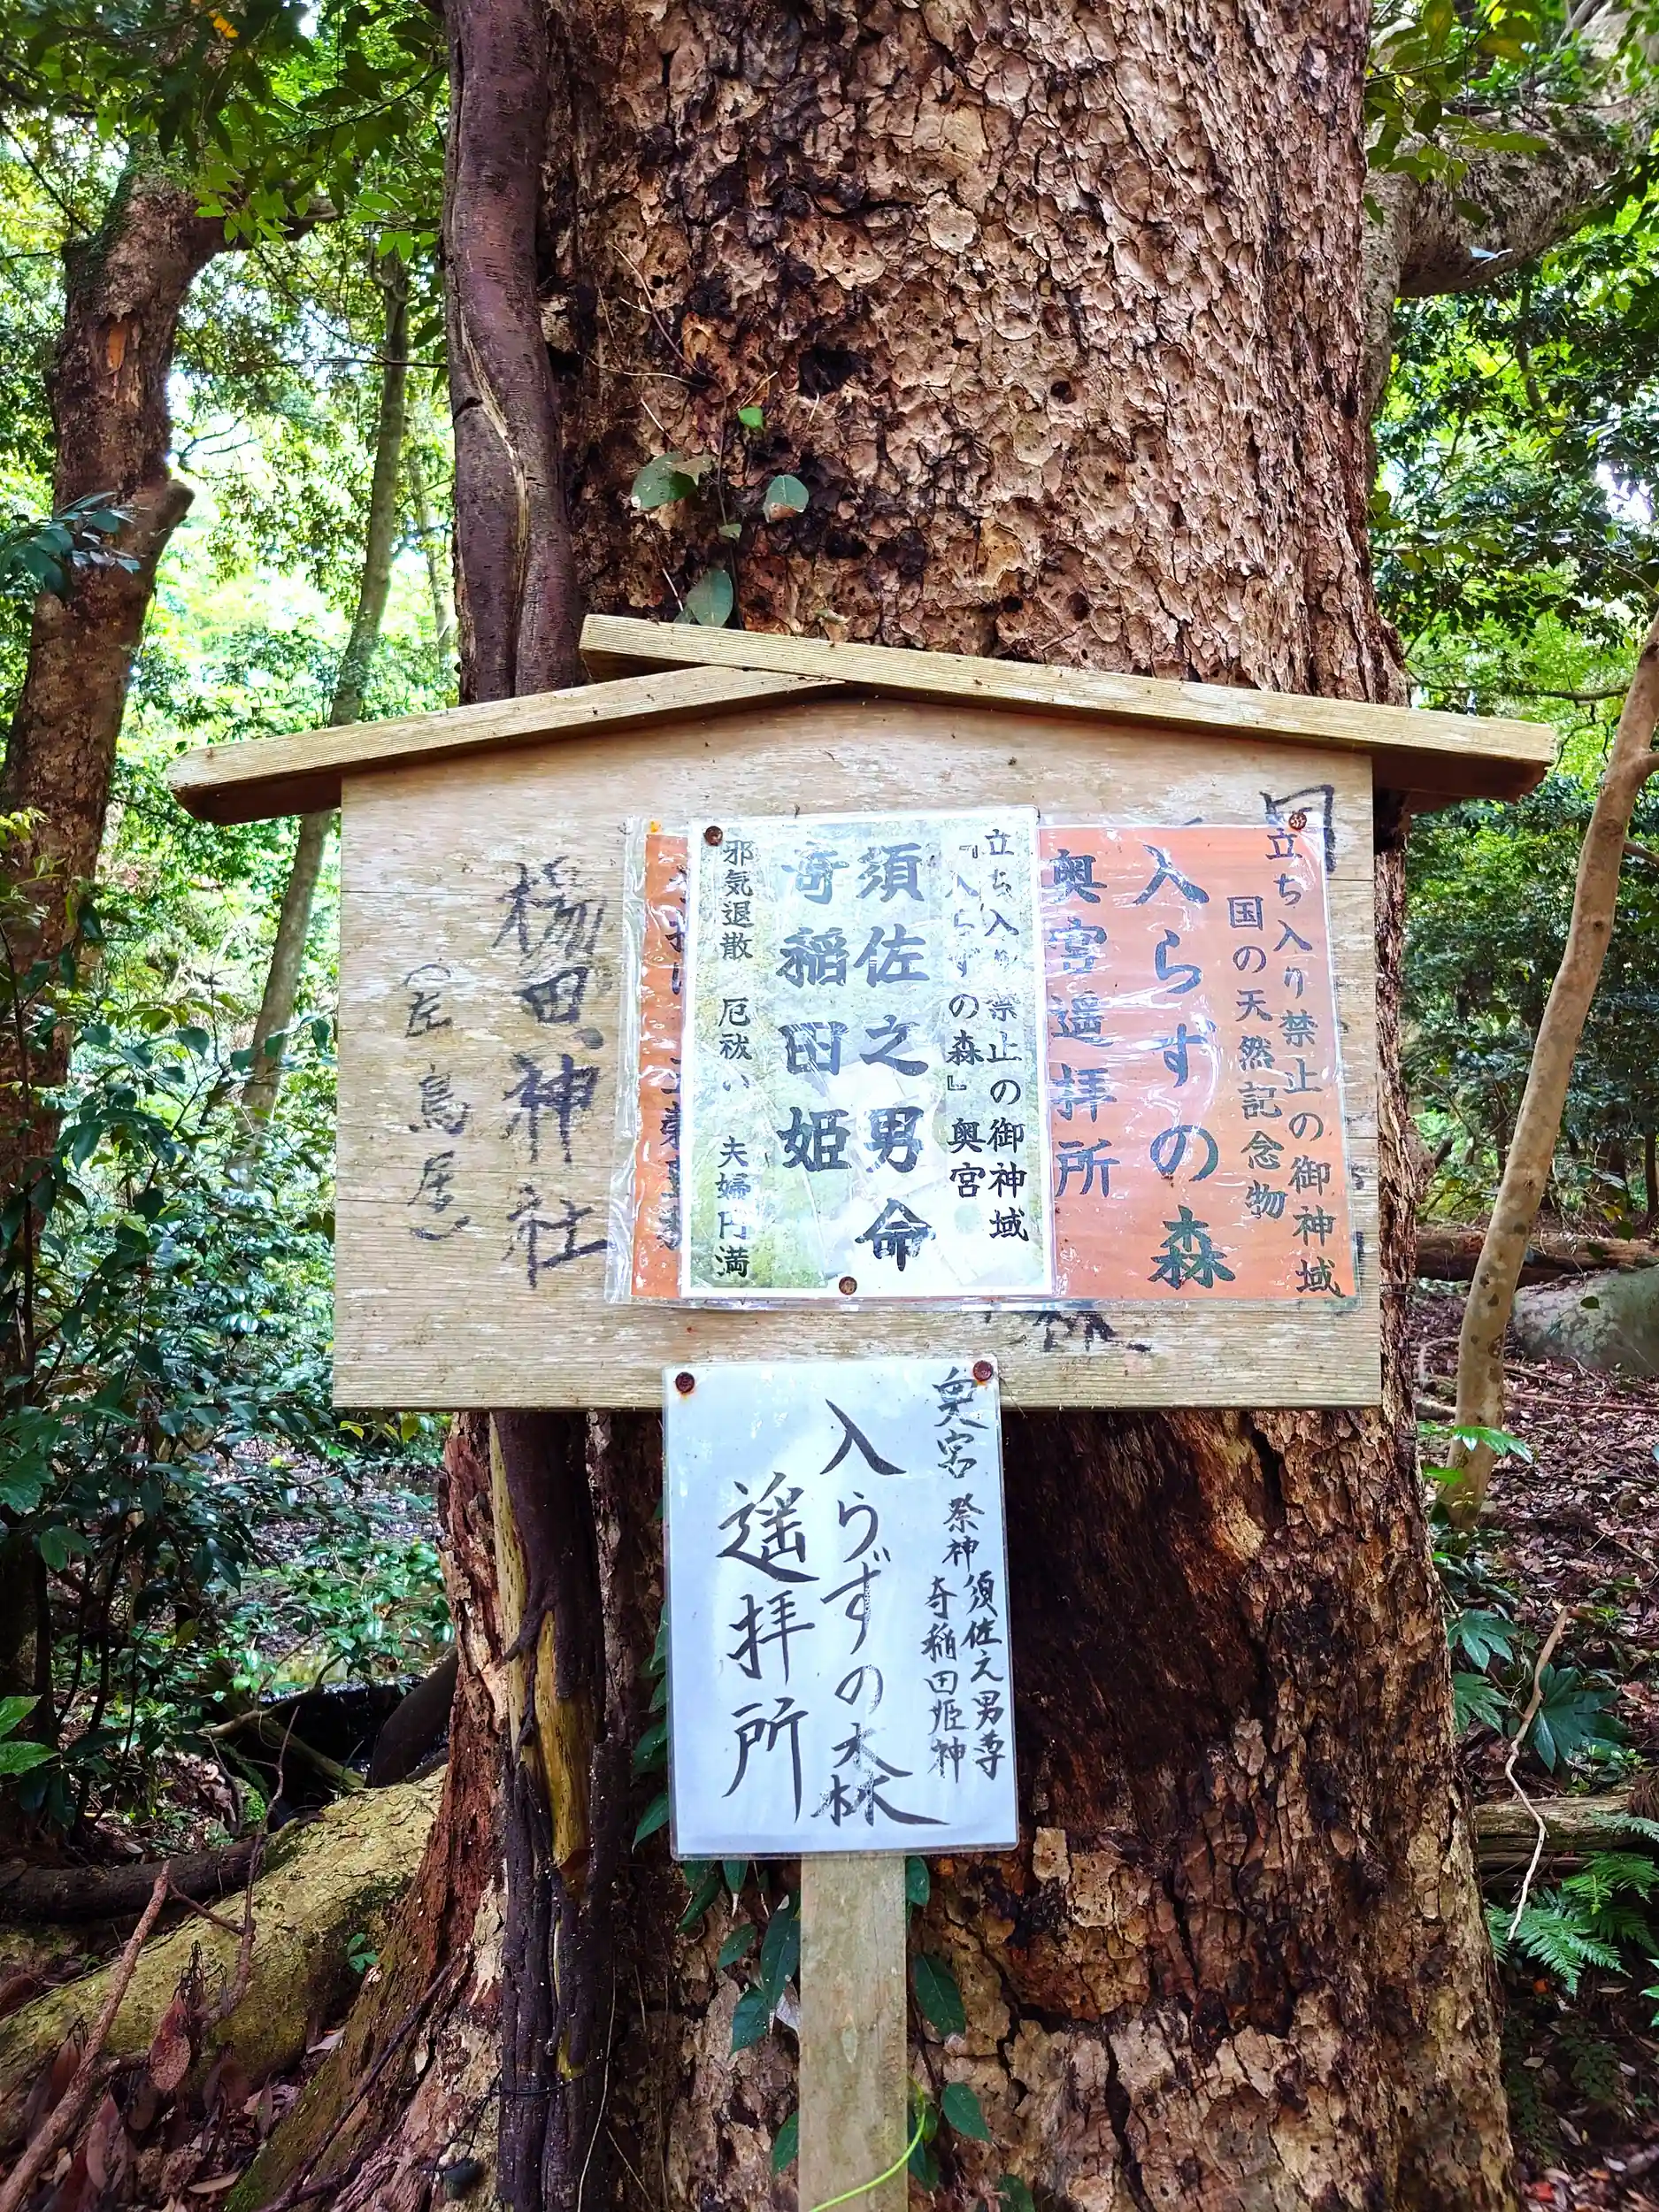 立ち入り禁止の御神域
国の天然記念物
入らずの森
奥宮遥拝所
立ち入り禁止の御神域
『入らずの森』奥宮
須佐之男命
奇稲田姫
邪気退散 厄祓い 夫婦円満
楊田神社
鳥居）
奥宮 祭神 須佐之男尊
奇稲田姫神
入らずの森
遥拝所